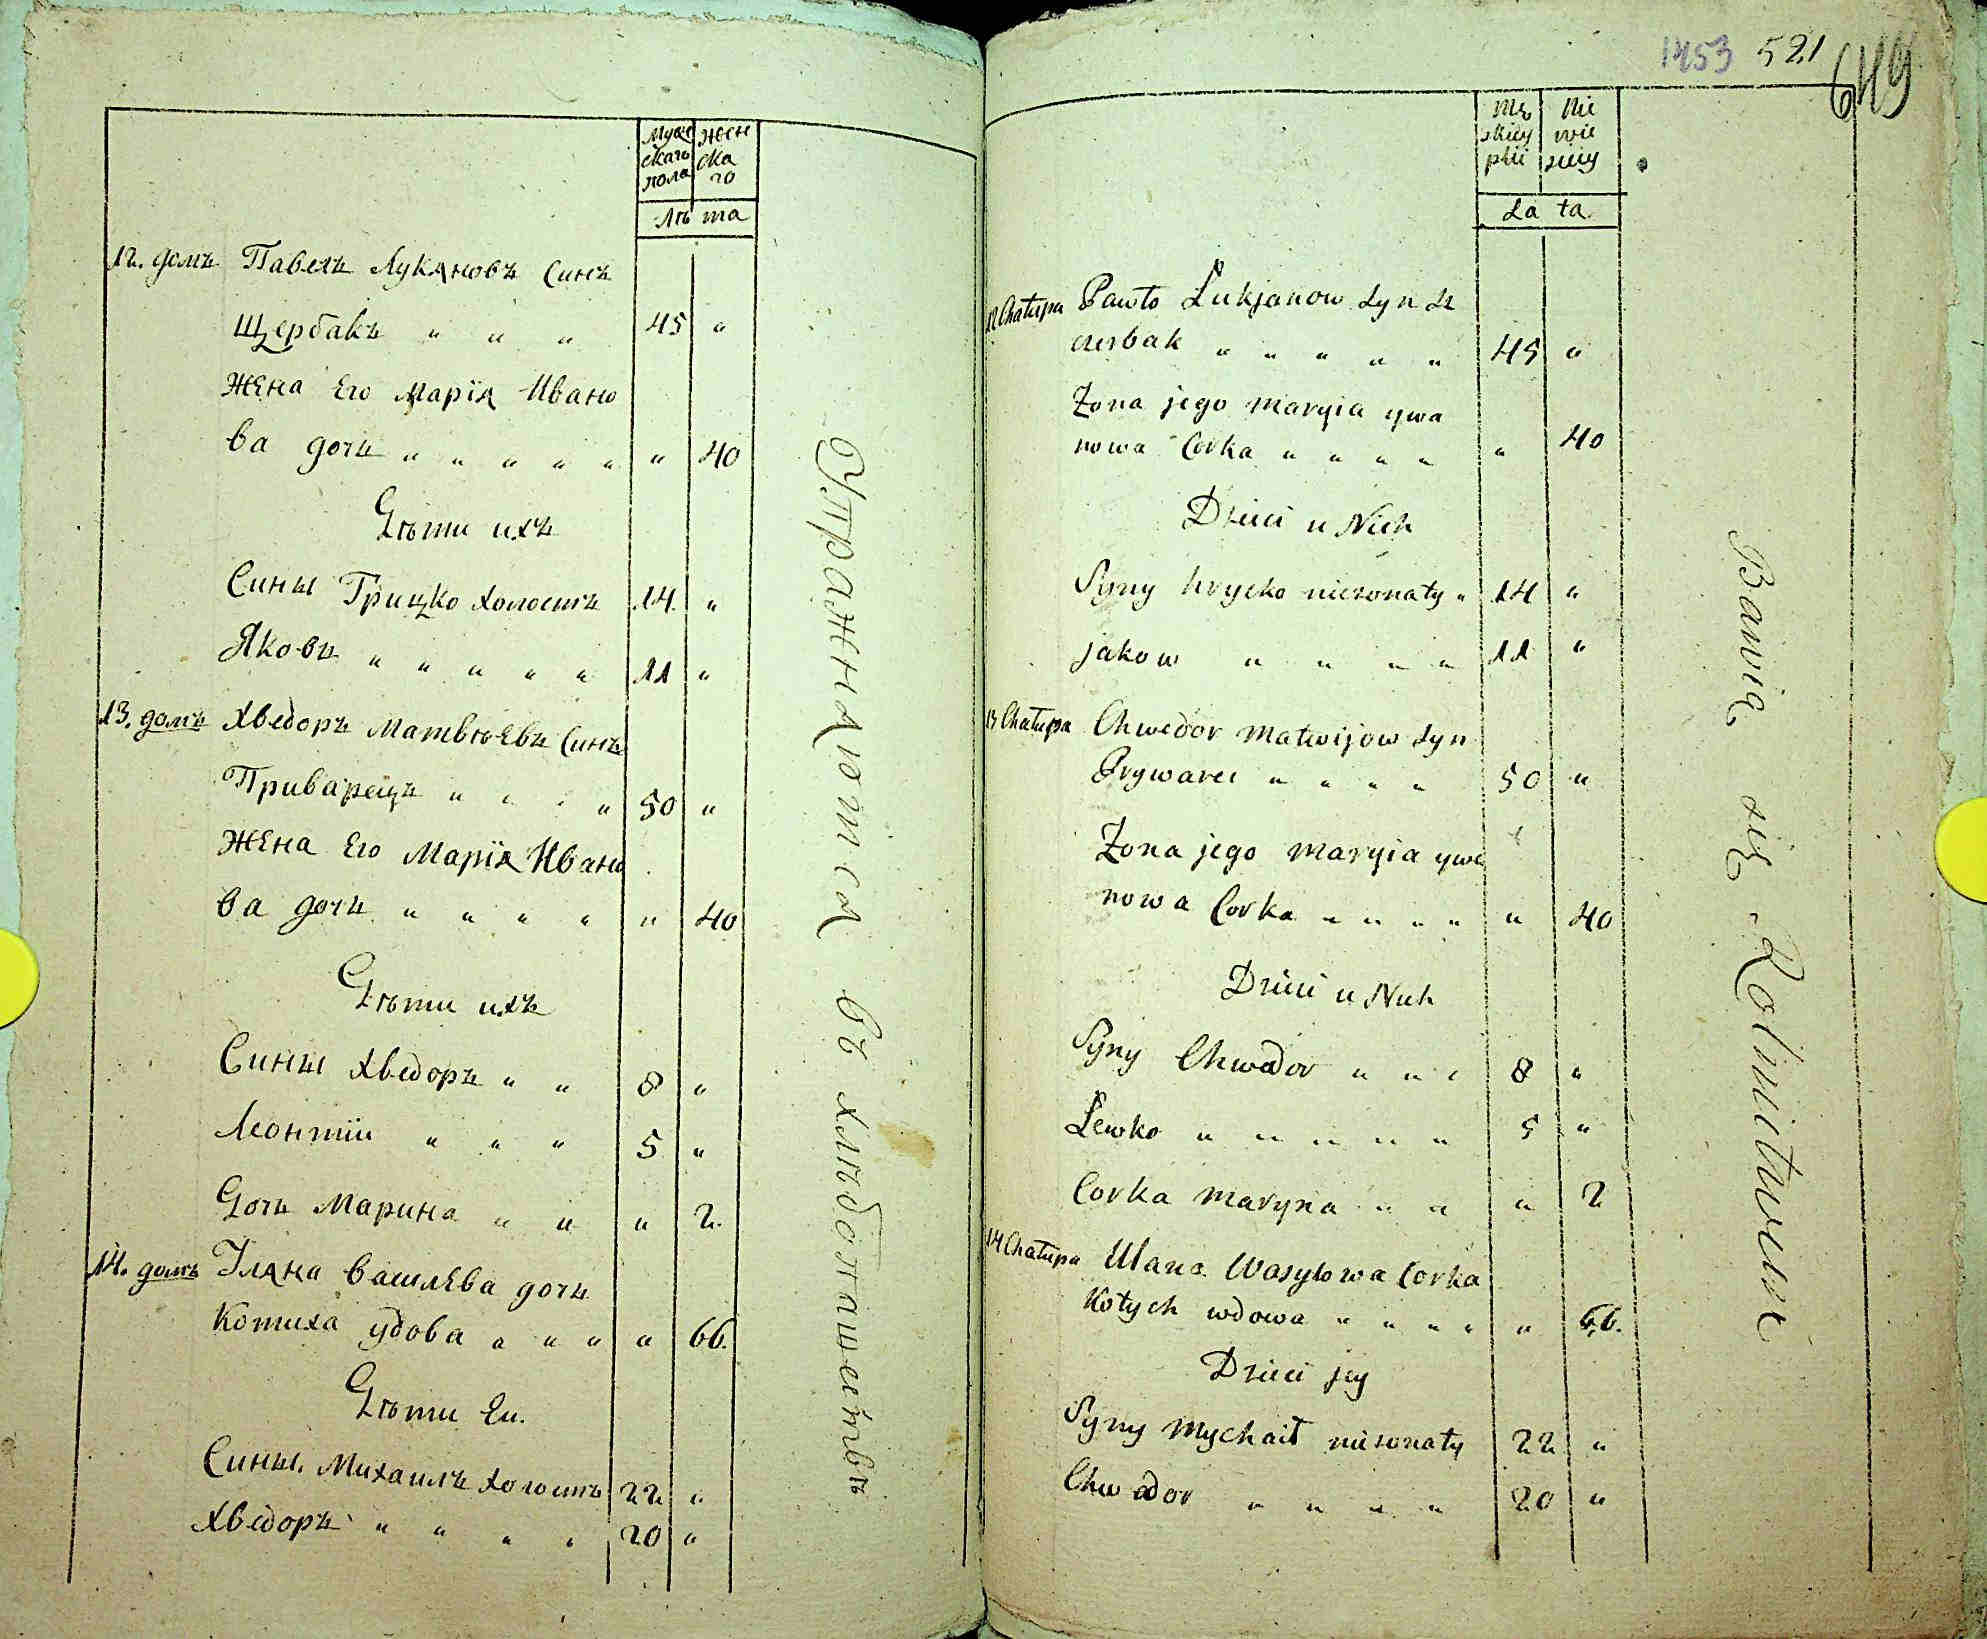 Муже
скаго
пола
Жен
ска
го
Лѣта
12. домъ Павелъ Лукяновъ Синъ
Щербакъ " " " 45 "
Жена Его Марїя Ивано
ва дочь " " " " " " 40
Дѣти ихъ
Сины Грицко холостъ 14. "
Яковъ " " " " " 11 "
13. домъ Хведоръ Матвѣевъ Синъ
Приварецъ " " " " 50 "
Жена Его Марїя Ивано
ва дочь " " " " " 40
Дѣти ихъ
Сины Хведоръ " " 8 "
Леонтїи " " " 5 "
Дочь Марина " " " 2.
14. домъ Уляна Василева дочь
Котиха удова " " " " 66.
Дѣти Еи.
Сины. Михаилъ холостъ 22 "
Хведоръ " " " " 20 "
Упражняются въ хлѣбопашентвѣ
1453 521
649
Mę
skiey
płci
Nie
wie
sciey
La ta.
12 Chałupa Pawło Łukjanow Syn Sz
czerbak " " " " " 45 "
Zona jego maryia ywa
nowa Corka " " " " " 40
Dzieci u Nich
Syny hrycko niezonaty " 14 "
jakow " " " " 11 "
13 Chałupa Chwedor matwijow Syn
Prywarec " " " " 50 "
Zona jego maryia ywa
nowa Corka " " " " " 40
Dzieci u Nich
Syny Chwedor " " " 8 "
Lewko " " " " " 5 "
Corka maryna " " " 2
14 Chałupa Ulana Wasylowa Corka
Kotych wdowa " " " " " 66.
Dzieci jey
Syny mychaił niezonaty 22 "
Chwedor " " " " 20 "
Bawią się Rolnictwem